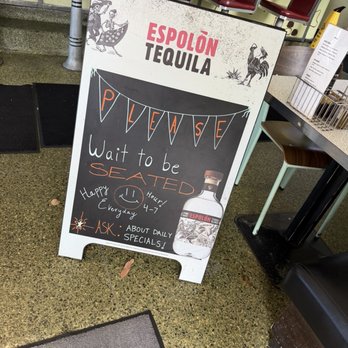 ESPOLÒN
TEQUILA
PLEASE
Wait to be
SEATED
Happy Hour!
Everyday 4-7
ASK: ABOUT DAILY
SPECIALS!
ESPOLÒN